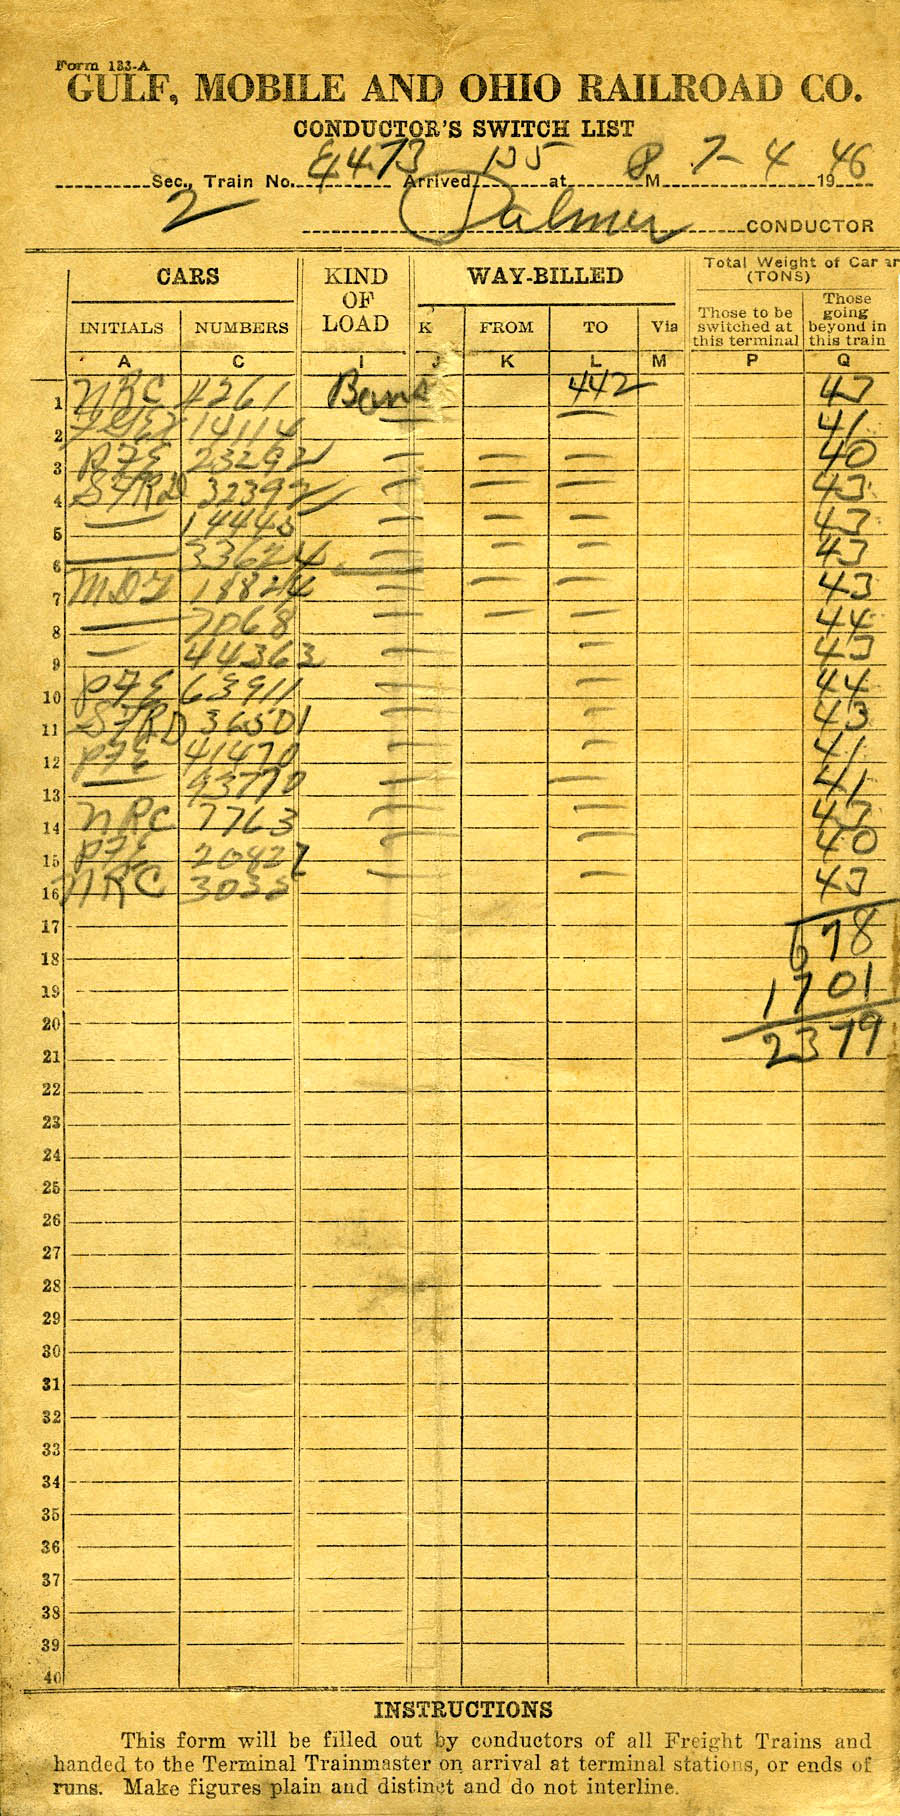 Form 133-A
GULF, MOBILE AND OHIO RAILROAD CO.
CONDUCTOR'S SWITCH LIST
Sec., Train No. E473 Arrived 155 at 8 M 7-4 1946
2 Palmer CONDUCTOR
CARS KIND OF LOAD WAY-BILLED Total Weight of Car ar (TONS)
INITIALS NUMBERS K FROM TO Via Those to be switched at this terminal Those going beyond in this train
A C I J K L M P Q
1 NRC 4261 Bans 442 43
2 FGEX 14114 — — 41
3 PFE 23292 — — — 40
4 SFRD 32397 — — — 43
5 — 14443 — — — 43
6 — 33624 — — — 43
7 MDT 18824 — — — 43
8 — 7068 — — — 44
9 — 44363 — — 43
10 PFE 63911 — — 44
11 SFRD 36501 — — 43
12 PFE 41470 — — 41
13 — 93770 — — 41
14 NRC 7763 — — 43
15 PFE 20827 — — 40
16 NRC 3035 — — 43
17 678
18
19 1701
20 2379
21
22
23
24
25
26
27
28
29
30
31
32
33
34
35
36
37
38
39
40
INSTRUCTIONS
This form will be filled out by conductors of all Freight Trains and
handed to the Terminal Trainmaster on arrival at terminal stations, or ends of
runs. Make figures plain and distinct and do not interline.